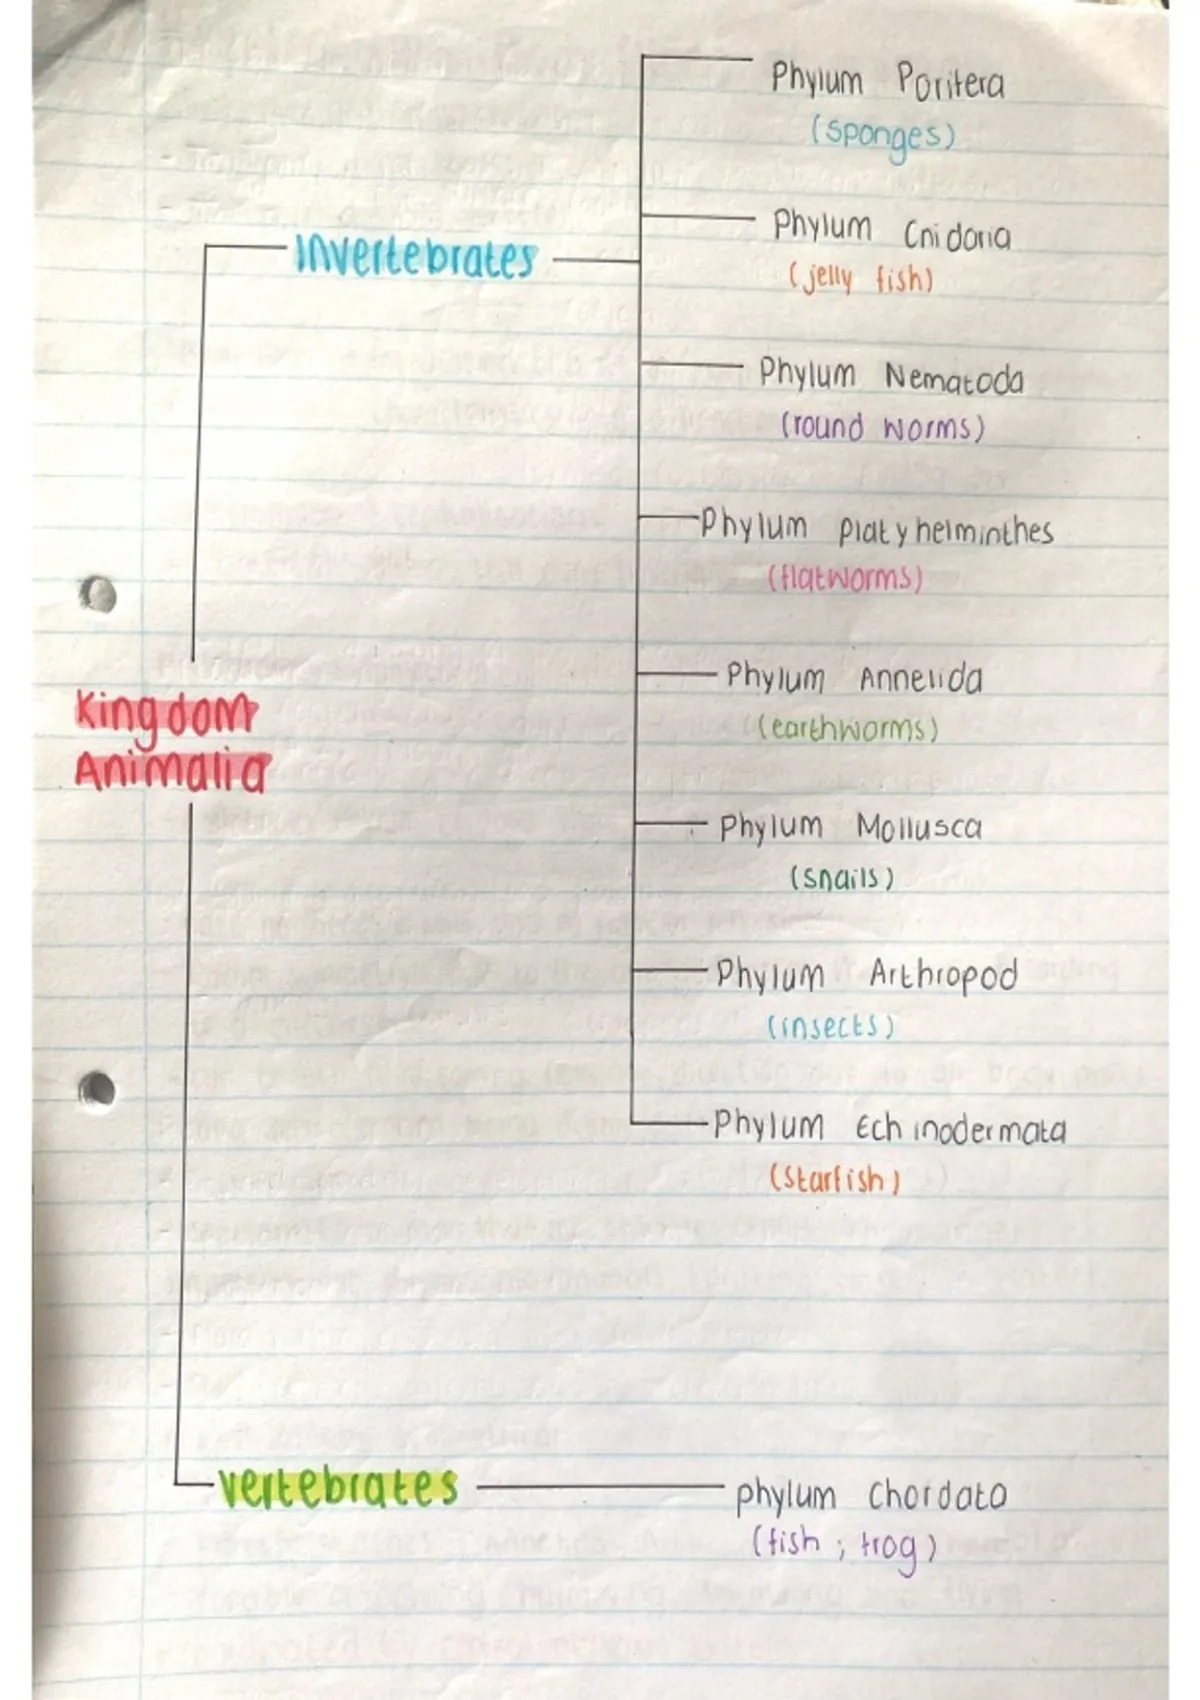 Phylum Porifera
(sponges)
Phylum Cnidaria
(jelly fish)
Invertebrates
Phylum Nematoda
(round worms)
Phylum Platyhelminthes
(flatworms)
Phylum Annelida
(earthworms)
Kingdom
Animalia
Phylum Mollusca
(snails)
Phylum Arthropod
(insects)
Phylum Echinodermata
(starfish)
vertebrates
phylum Chordata
(fish ; frog)